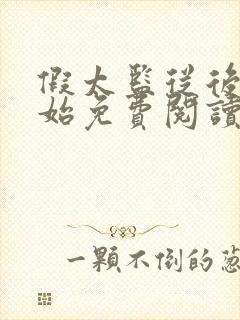 假太監從後
始免費閱讀
一顆不倒的蔥